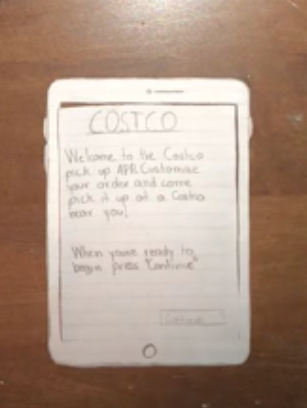 COSTCO
Welcome to the Costco
pick up APP. Customize
your order and come
pick it up at a Costco
near you!
When you're ready to
begin press "Continue"
Continue